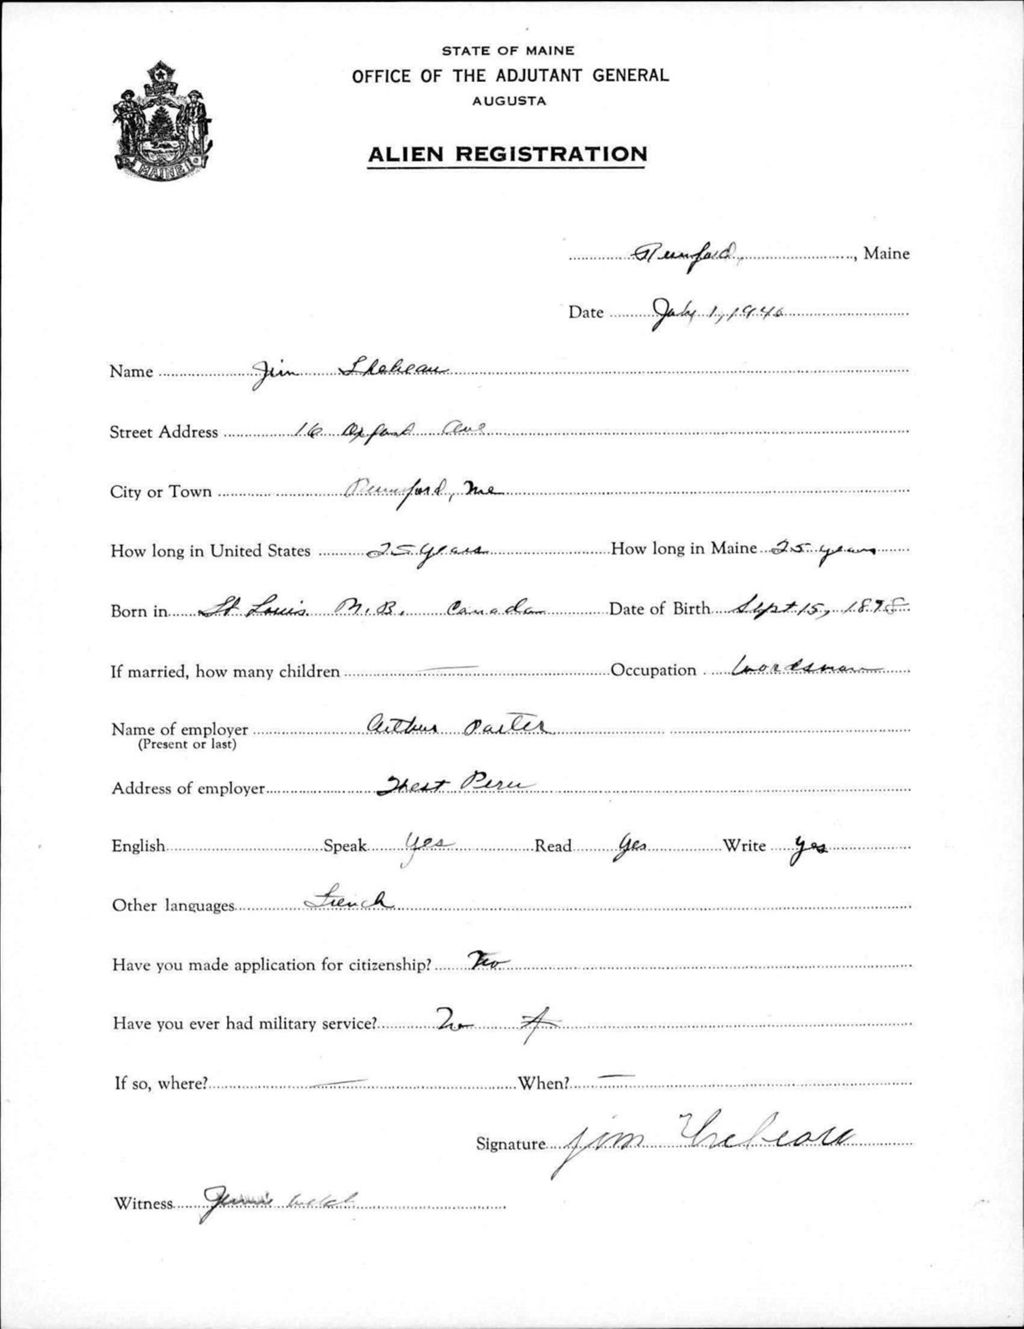 STATE OF MAINE
OFFICE OF THE ADJUTANT GENERAL
AUGUSTA
ALIEN REGISTRATION
MAINE
Rumford, , Maine
Date July 1, 1940
Name Jim
Street Address 16 Oxford Ave
City or Town Rumford, Me
How long in United States 25 years How long in Maine 25 years
Born in St Louis N.B. Canada Date of Birth Sept 15, 1898
If married, how many children — Occupation Woodsman
Name of employer Arthur
(Present or last)
Address of employer West Peru
English Speak Yes Read Yes Write Yes
Other languages French
Have you made application for citizenship? No
Have you ever had military service? No
If so, where? — When? —
Signature Jim
Witness Jennie Welch